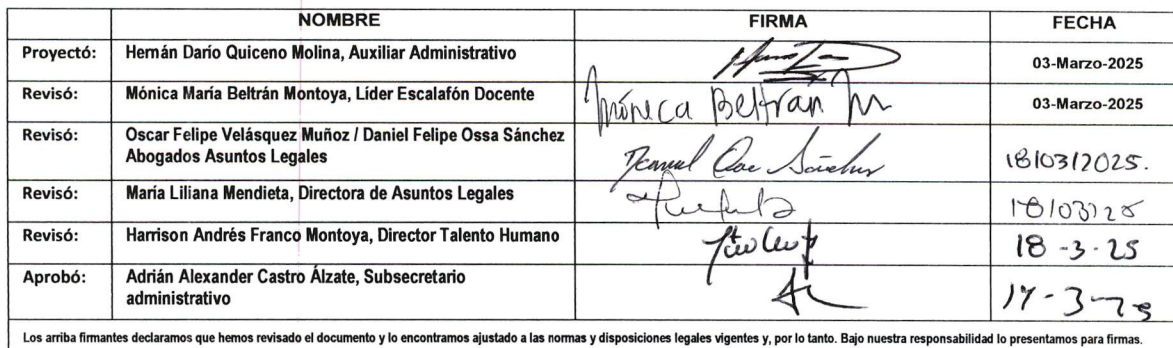 NOMBRE FIRMA FECHA
Proyectó: Hernán Darío Quiceno Molina, Auxiliar Administrativo 03-Marzo-2025
Revisó: Mónica María Beltrán Montoya, Líder Escalafón Docente Mónica Beltrán M 03-Marzo-2025
Revisó: Oscar Felipe Velásquez Muñoz / Daniel Felipe Ossa Sánchez
Abogados Asuntos Legales 18/03/2025.
Revisó: María Liliana Mendieta, Directora de Asuntos Legales 18/03/25
Revisó: Harrison Andrés Franco Montoya, Director Talento Humano 18-3-25
Aprobó: Adrián Alexander Castro Álzate, Subsecretario
administrativo
Los arriba firmantes declaramos que hemos revisado el documento y lo encontramos ajustado a las normas y disposiciones legales vigentes y, por lo tanto. Bajo nuestra responsabilidad lo presentamos para firmas.